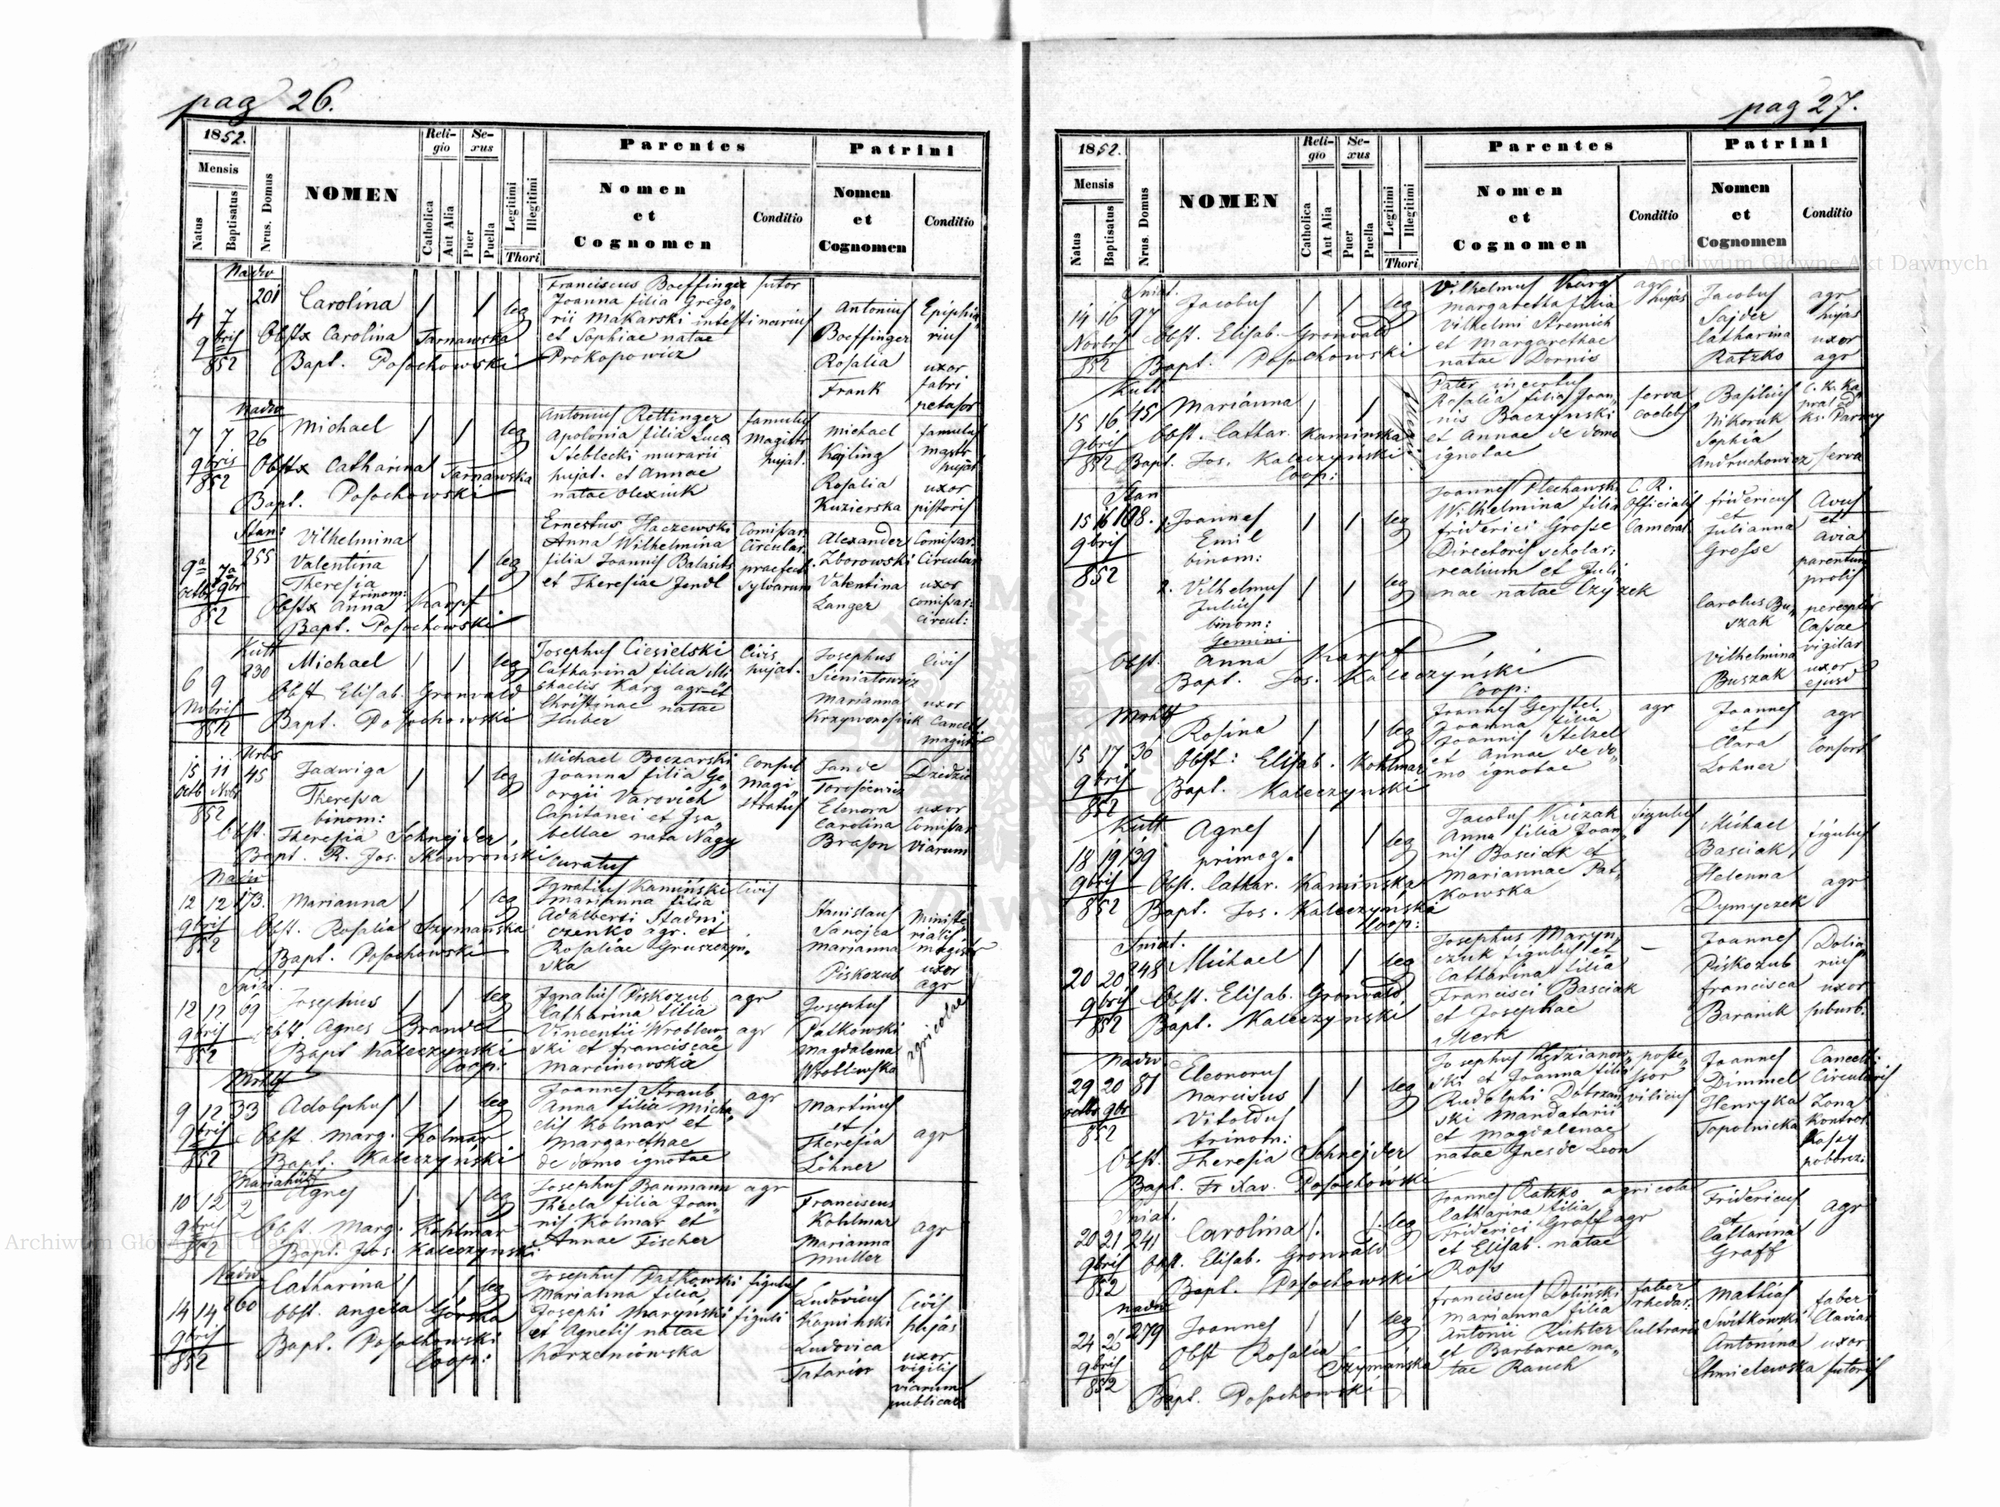 pag 26.
1852.
Religio
Sexus
Parentes
Patrini
Mensis
Natus
Baptisatus
Nrus. Domus
NOMEN
Catholica
Aut Alia
Puer
Puella
Legitimi
Illegitimi
Thori
Nomen et Cognomen
Conditio
Nomen et Cognomen
Conditio
Nadw
4 7 201 Carolina 1 1 leg
9bris Obstx Carolina Tarnawska
852 Bapt. Posochowski
Franciscus Boeffinger sutor
Joanna filia Grego
rii Makarski intestinarius
et Sophiae natae
Prokopowicz
Antonius
Boeffinger
Rosalia uxor
Frank fabri
petasor
Nadw
7 7 26 Michael 1 1 leg
9bris Obstx Catharina Tarnawska
852 Bapt. Posochowski
Antonius Rettinger famulus
Apolonia filia Luca Magistr
Steblecki murarii hujat.
hujat. et Annae
natae Olexiuk
Michael famulus
Hajling magistr
hujat
Rosalia uxor
Kuzierska pistoris
Stan:
255 Vilhelmina
Valentina 1 1 leg
Theresia
trinom:
Obstx Anna Karpf
852 Bapt. Posochowski
Ernestus Haczewski Comissar
Anna Wilhelmina Circular
filia Joannis Balasits praefect
et Theresiae Jendl sylvarum
Alexander Comissar
Zborowski Circular
Valentina uxor
Langer Comissar:
circul:
Kutt
6 9 230 Michael 1 1 leg
Nvbris Obst Elisab. Gronvald
852 Bapt. Posochowski
Josephus Ciesielski Civis
Catharina filia Mi hujat.
chaelis Karg agr et
Christinae natae
Huber
Josephus Civis
Sieniatowicz
Marianna uxor
Krzyvonosiuk Cancell
magistr
Urbs
15 11 45 Jadwiga 1 1 leg
Octb Nvbr Theressa
852 binom:
Obst. Theresia Schnejder
Bapt. R. Jos. Skowroński curatus
Michael Boczarski Consul
Joanna filia Ge Magi
orgii Varovich stratus
Capitanei et Isa
bellae nata Nagy
Jan de Dziedzic
Torosiewicz
Elenora uxor
Carolina Comissar
Brason viarum
Nadw
12 12 173. Marianna 1 1 leg
9bris Obst. Rosalia Szymańska
852 Bapt. Posochowski
Ignatius Kamiński civis
Marianna filia
Adalberti Stadni
czenko agr. et
Rosaliae Gruszczyn
ska
Stanislaus
Sanojca
Marianna magistr
Piskozub uxor
agr
12 12 69 Josephus 1 1 leg
9bris Obst Agnes Brandel
852 Bapt Kaleczynski
Coop:
Ignatius Piskozub agr
Catharina filia
Vincentii Wroblew agr
ski et Franciscae
Marcinowska
Josephus
Patkowski
Magdalena
Wroblewska
agricolae
Mrhlf
9 12 33 Adolphus 1 1 leg
9bris Obst. Marg. Kolmar
852 Bapt. Kaleczynski
Joannes Straub agr
Anna filia Micha
elis Kolmar et
Margarethae
de domo ignotae
Martinus
et
Theresia agr
Löhner
Mariahülf
10 12 2 Agnes 1 1 leg
9bris Obst Marg. Kohlmar
852 Bapt. Jos. Kaleczynski
Josephus Baumann agr
Thecla filia Joan
nis Kolmar et
Annae Fischer
Franciscus
Kohlmar agr
Marianna
Muller
Nadw
14 14 260 Catharina 1 1 leg
9bris Obst. Angela Gorska
852 Bapt. Posochowski
Coop:
Josephus Patkowski figulus
Marianna filia
Josephi Marynski figuli
et Agnetis natae
Korzeniowska
Ludovicus Civis
Kaminski hujas
Ludovica uxor
Tatarin vigilis
viarum
publicae
pag 27.
1852.
Religio
Sexus
Parentes
Patrini
Mensis
Natus
Baptisatus
Nrus. Domus
NOMEN
Catholica
Aut Alia
Puer
Puella
Legitimi
Illegitimi
Thori
Nomen et Cognomen
Conditio
Nomen et Cognomen
Conditio
Sniat.
14 16 97 Jacobus 1 1 leg
Novbris Obst. Elisab. Gronvald
852 Bapt. Posochowski
Vilhelmus Karg agr
Margaretha filia hujas
Vilhelmi Stremich
et Margarethae
natae Dornis
Jacobus agr
Sajder hujas
Catharina uxor
Ratzko agr
Kutt
15 16 45 Marianna 1 1
9bris Obst. Cathar. Kaminska
852 Bapt. Jos. Kaleczynski
Coop:
Pater incertus
Rosalia filia Joan serva
nis Baczynski coelebs
et Annae de domo
ignotae
Basilius
Nikoruk
Sophia
Andruchowicz serva
Stan
15 16 108. 1. Joannes 1 1 leg
9bris Emil
852 binom:
2. Vilhelmus 1 1 leg
Julius
binom:
Gemini
Obst. Anna Karpf
Bapt. Jos. Kaleczyński
Coop:
Joannes Plechawski C. R.
Wilhelmina filia Officialis
friderici Grosse Cameral
Directoris scholar:
realium et Juli
nae natae Czyżek
fridericus Avus
et et
Julianna avia
Grosse parentum
prolis
Carolus Bu perceptor
szak Cassae
vigilar
Vilhelmina uxor
Buszak ejusd
Mrhlf
15 17 30 Rosina 1 1 leg
9bris Obst: Elisab. Kohlmar
852 Bapt. Kaleczynski
Joannes Gerstel agr
Joanna filia
Joannis Stelzel
et Annae de do
mo ignotae
Joannes agr
et
Clara Consors
Lohner
Kutt
18 19 139 Agnes 1 1 leg
9bris primog.
852 Obst. Cathar. Kamińska
Bapt. Jos. Kaleczynski
Coop:
Jacobus Kuzak figulus
Anna filia Joan
nis Basciak et
Mariannae Pat
kowska
Michael figulus
Basciak
Helenna agr
Dymyczek
Sniat.
20 20 248 Michael 1 1 leg
9bris Obst. Elisab. Gronvald
852 Bapt. Kaleczynski
Josephus Maryn
czuk figulus et
Catharina filia
Francisci Basciak
et Josephae
Sterk
Joannes
Piskozub
Francisca uxor
Baranik suburb.
Nadw
29 20 81 Eleonorus 1 1 leg
octbr 9br Narcisus
852 Vitoldus
trinom:
Obst. Theresia Schnejder
Bapt. Fr Xav. Posochowski
Josephus Jędrzianow posse
ski et Joanna filia ssor
Rudolphi Dobrzań vilicus
ski Mandatarii
et Magdalenae
natae Jnes de Leon
Joannes Cancell:
Dimmel Circularis
Henryka Zona
Topolnicka Kontrol
Kassy
poborcz:
Sniat.
20 21 241 Carolina 1. 1. leg
9bris Obst. Elisab. Gronvald
852 Bapt. Posochowski
Joannes Ratzko agricola
Catharina filia
Friderici Graff agr
et Elisab. natae
Ross
Fridericus
et agr
Catharina
Graff
Nadw
24 279 Joannes 1 1 leg
9bris Obst Rosalia
852 Szymańska
Bapt. Posochowski
Franciscus Doliński faber
Marianna filia rhedar.
Antonii Richter Cultrarii
et Barbarae na
tae Rauch
Mathias faber
Switkowski Clavias
Antonina uxor
Chmielewska sutoris
Archiwum Główne Akt Dawnych
Archiwum Główne Akt Dawnych